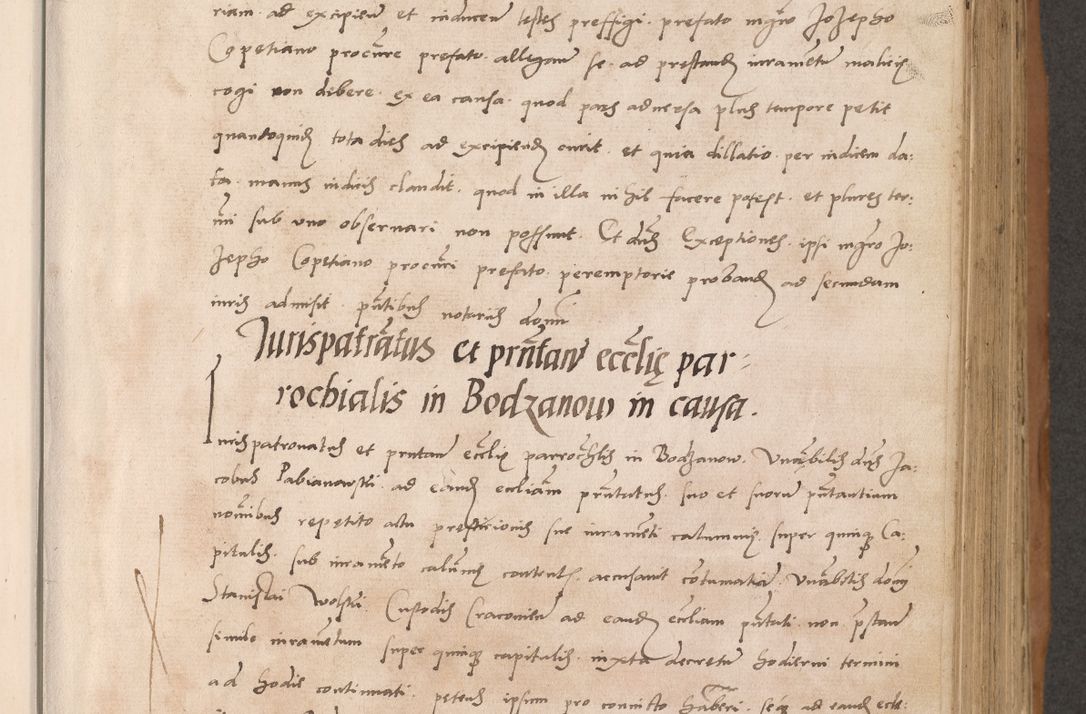 riam ad excipiendum et inducendum testes preffigi prefato mgro Josepho
Copetiano procure prefato allegan se ad prestand iurametu malicie
cogi non debere ex ea causa quod pars adversa plus tempore petit
quandoquid tota dies ad excipiend currit et quia dillatio per iudicem da:
ta manus iudicis claudit quod in illa nihil facere potest et plures ter:
mi sub uno observari non possunt Et dns Exceptiones ipsi mgro Jo:
sepho Copetiano procuri prefato peremptorie proband ad secundam
iuris admisit pntibus notariis domi
Jurispatratus et prntan ecclie par:
rochialis in Bodzanow in causa.
Jurispatronatus et prntan ecclie parrochlis in Bodzanow Vnabilis dns Ja:
cobus Pabianowski ad eand eccliam prntatus suo et suoru pntantium
nominibus repetito actu prestitionis sue iuramti calumnie super quinq Ca:
pitulis sub iuramto calumnie content accusavit cotumatia Vnabilis domi
Stanislai Wolski Custodis Cracovien ad eand eccliam pntati non pstan
simile iurametum super quinq capitulis iuxta decretu hodierni termini
ad hodie continuati petens ipsum pro convicto haberi seq ad eand eccle: